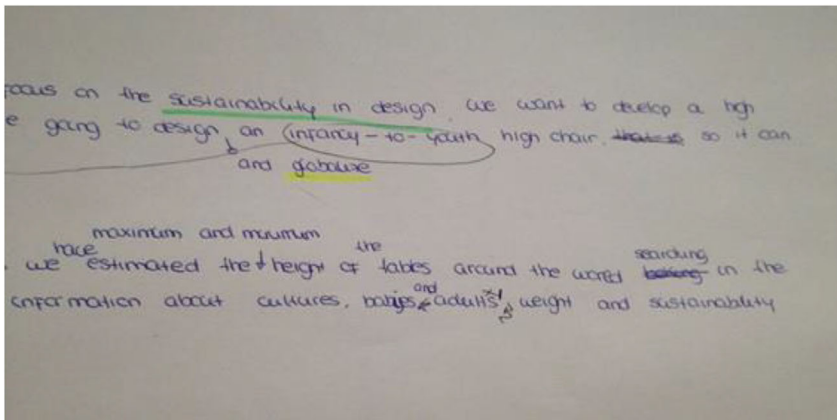 focus on the sustainability in design. We want to develop a high
e going to design, an infancy-to-youth high chair. that is so it can
and globalize
maximum and minimum
have the searching
. we estimated the height of tables around the world looking in the
and
information about cultures, babies adults' weight and sustainability